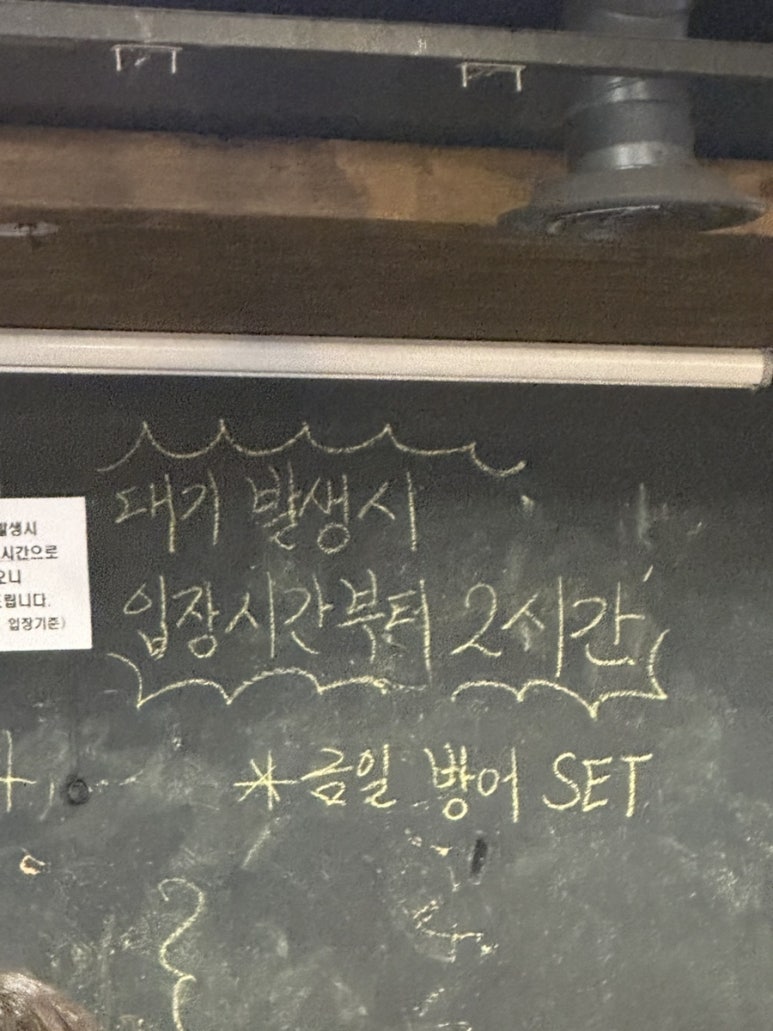 대기 발생시
입장시간부터 2시간
*금일 방어 SET
발생시
시간으로
오니
드립니다.
입장기준)